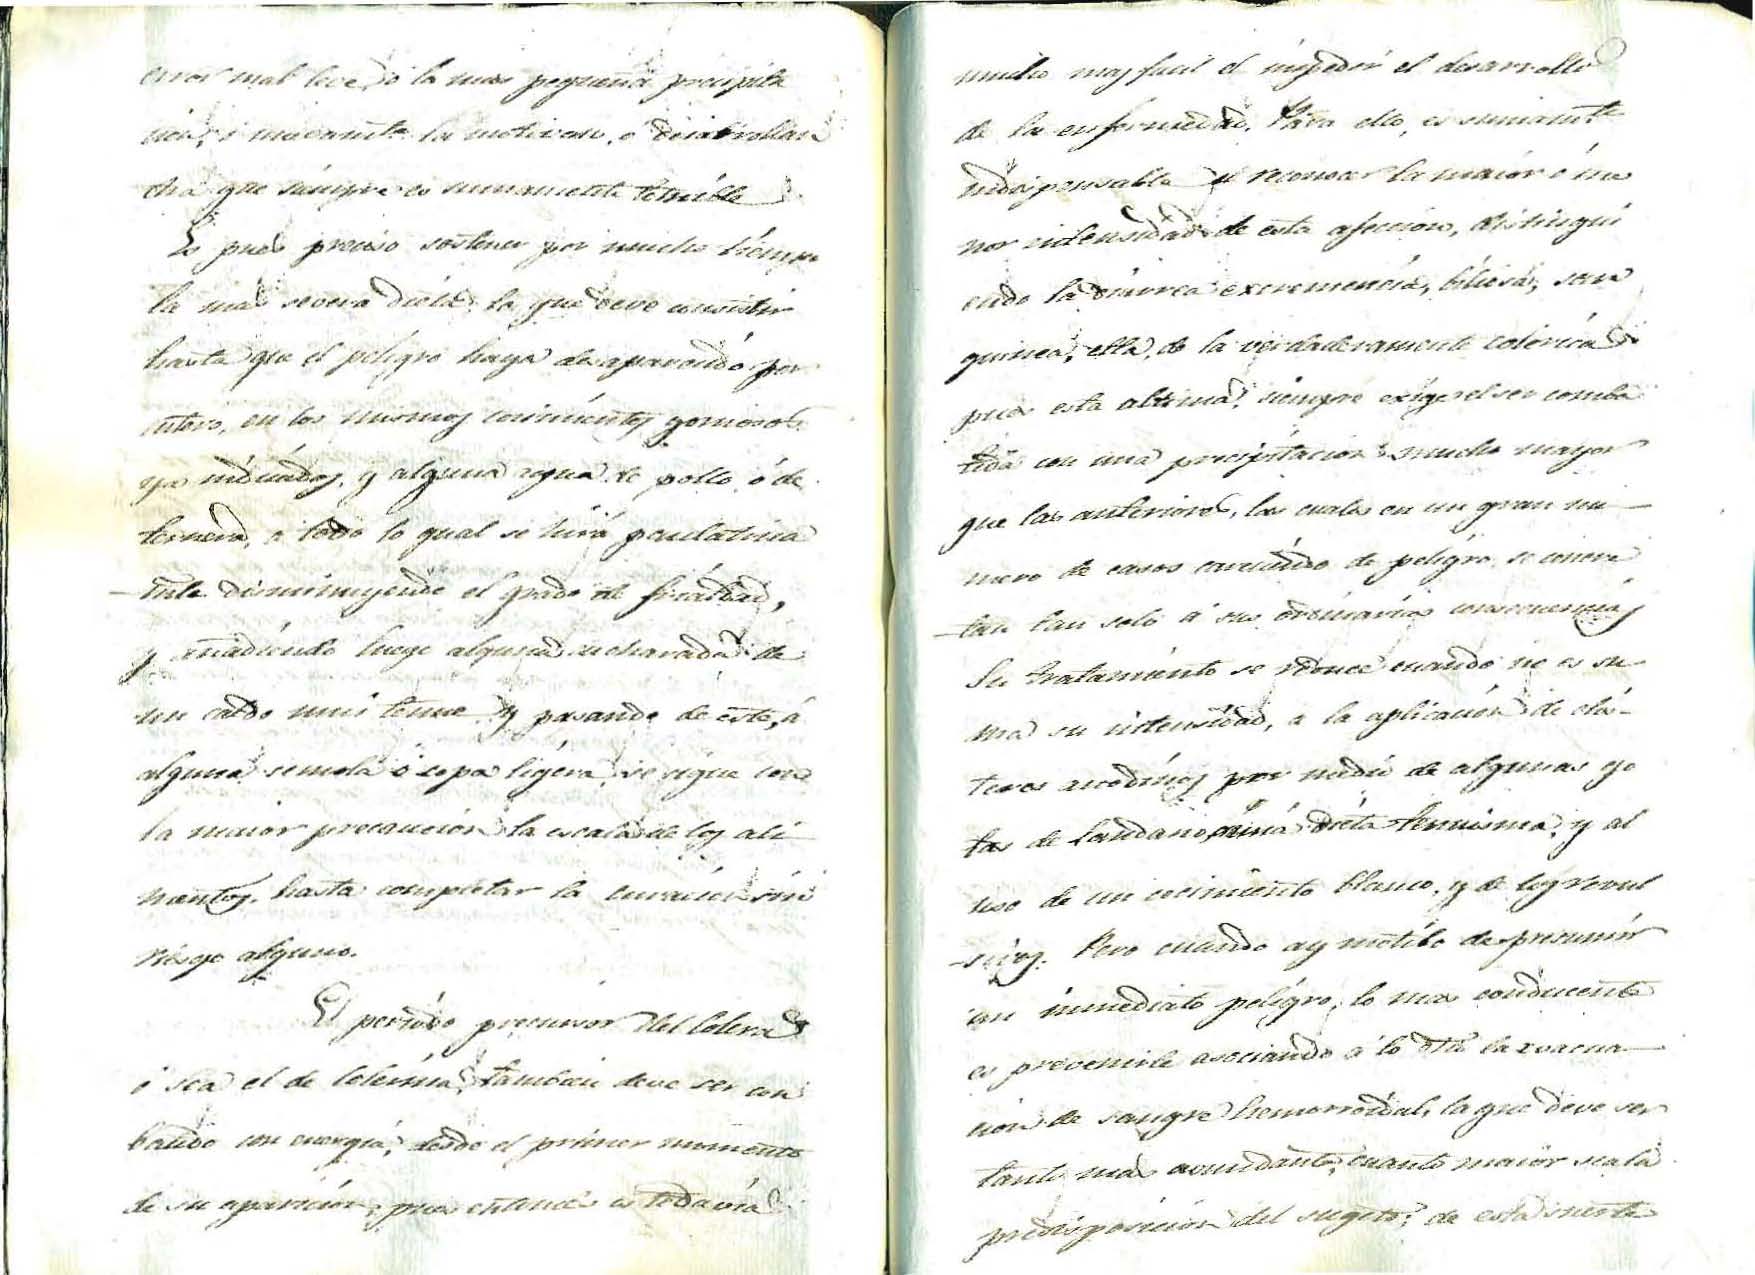 error mas leve, ó la mas pequeña precipita
cion, i la motivan, o desarrollan
cha que siempre es sumamente temible
Es pues preciso sostener por mucho tiempo
la mas severa dieta la que deve consistir
hasta que el peligro haya desaparecido por
entero, en los mismos cocimientos gomosos
ya indicados, y alguna agua de pollo, ó de
ternera, a todo lo qual se hirá paulatina
mte. disminuyendo el grado de frialdad,
y añadiendo luego alguna cucharada de
un caldo mui tenue y pasando de este, á
alguna semola ó sopa ligera, se sigue con
la maior precaucion la escala de los ali
mentos, hasta completar la curacion sin
riesgo alguno.
El periodo precursor del Colera
ó sea el de Colerina, tambien deve ser con
batido con energia, desde el primer momento
de su aparicion, pues entonces es todavia
mucho mas facil el impedir el desarrollo
de la enfermedad. Para ello, es sumamte.
indispensable el reconocer la maior ó me
nor intensidad de esta afeccion, distingui
endo la diarrea excremencia, biliosa, san
guinea, ella, de la verdaderamente colerica
pues esta ultima, siempre exige el ser comba
tida con una precipitacion mucho mayor
que las anteriores, las cuales en un gran nu
mero de casos careciendo de peligro se concre
tan tan solo á sus ordinarias consecuencias
Su tratamiento se reduce cuando no es su
ma su intensidad, a la aplicación de clis-
teres anodinos por medio de algunas go
tas de laudano, una dieta tenuisima, y al
uso de un cocimiento blanco, y de los revul
sivos. Pero cuando ay motibo de presumir
un inmediato peligro, lo mas conducente
es prevenirle asociando á lo dho la evacua
cion de sangre hemorroidal, la que deve ser
tanto mas avundante, cuanto maior sea la
predisposicion del sugeto; de esta suerte